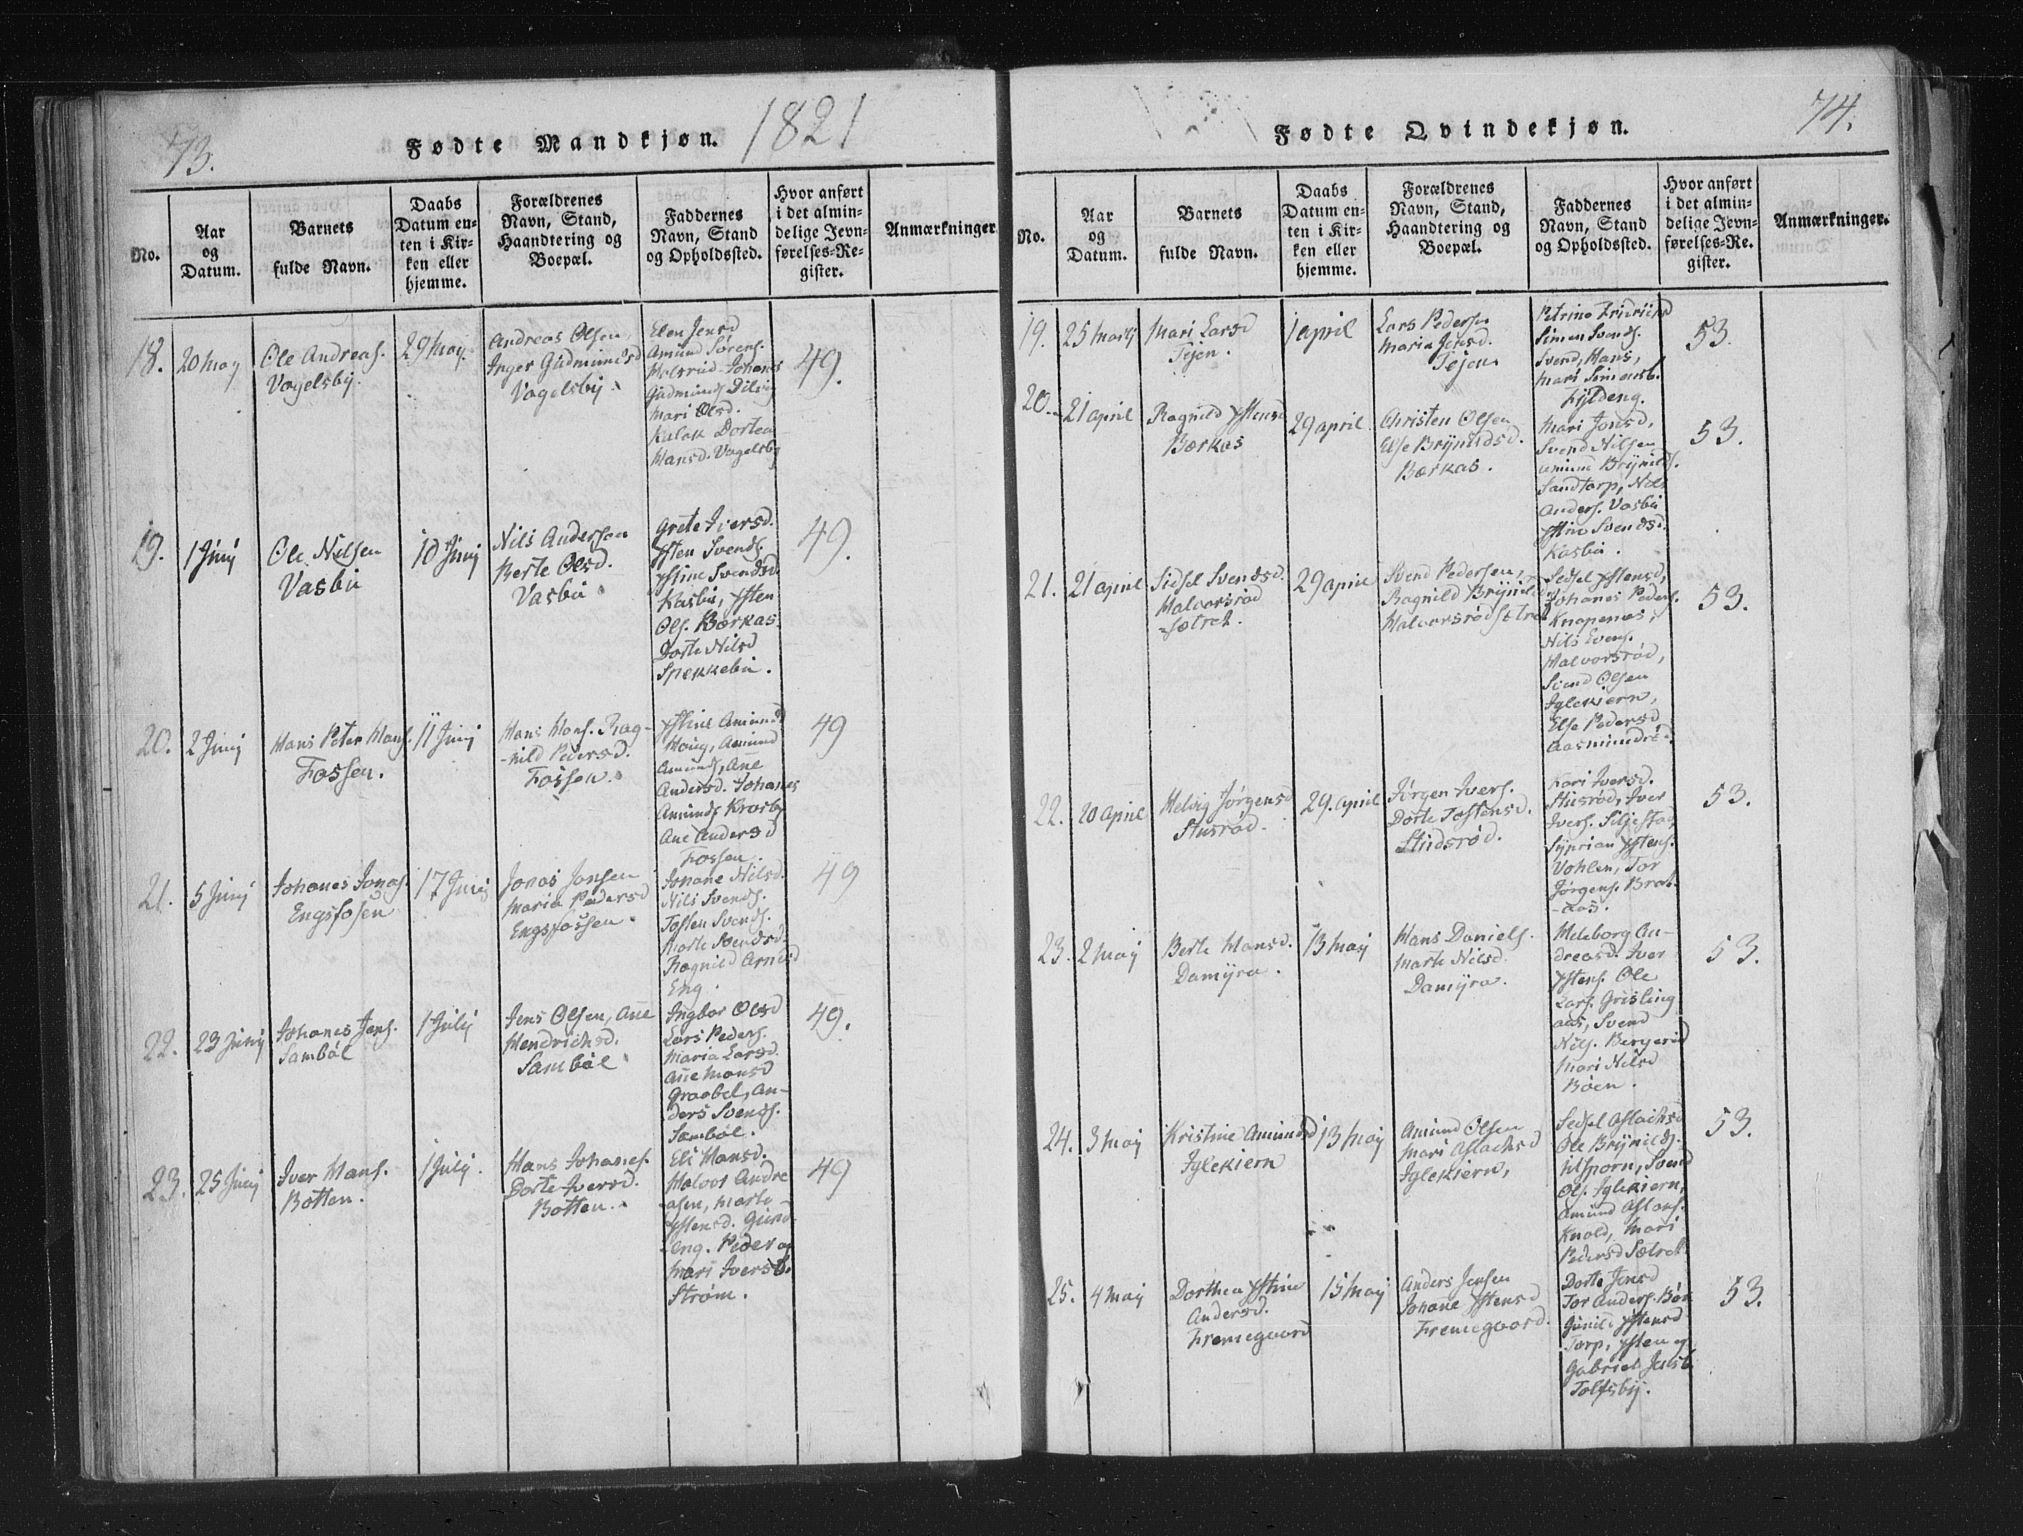 73.
Fødte Mandkjøn.
1821
No.
Aar
og
Datum.
Barnets
fulde Navn.
Daabs
Datum en-
ten i Kir-
ken eller
hjemme.
Forældrenes
Navn, Stand,
Haandtering og
Boepæl.
Faddernes
Navn, Stand
og Opholdssted.
Hvor anført
i det almin-
delige Jevn-
førelses-Re-
gister.
Anmærkninger
18.
20 May
Ole Andreas.
Vagelsby.
29 May
Andreas Olsen
Inger Gudmunds
Vagelsby.
Elen Jensd
Amund Sørens.
Holsrud Johanes
Gudmunds
Mari Olsd.
Dortea
Hansd. Vagelsby
49.
19.
1 Junj
Ole Nilsen
Vasbu
10 Junj
Nils Andersen
Berte Olsd.
Vasbu
Grete Iversd.
Ysten Svends.
Ystine Svendsd.
Kasbu, Ysten
Ols. Bærkas.
Dorte Nilsd
Spækkebu.
49.
20.
2 Junj
Hans Peter Hans.
Fossen.
11 Junj
Hans Hans. Rag-
-nild Pedersd.
Fossen
Ystine Amunds
Haug, Amund
Amunds, Ane
Andersd. Johanes
Amunds Krosby
Ane Andersd
Fossen.
49
21.
5 Junj
Johanes Jonas.
Engsfosen
17 Junj
Jonas Jonsen
Maria Pedersd
Engsfossen.
Johane Nilsd.
Nils Svends.
Tosten Svends.
Marte Svendsd.
Ragnild Arnesd
Eng.
49
22.
23 Junj
Johanes Jens.
Sambøl
1 Julj
Jens Olsen, Ane
Hendrichsd.
Sambøl
Ingbor Olsd
Lars Peders.
Maria Larsd.
Ane Hansd
Graabøl, An-
ders Svends.
Sambøl.
49.
23.
25 Junj
Iver Hans.
Botten.
1 Julj.
Hans Johanes.
Dorte Iversd.
Botten.
Eli Hansd.
Halvor Andre
asen, Marte
Ystensd. Gund
-eng. Peder og
Mari Iversb.
Strøm.
49
74.
Fødte Qvindekjøn.
No.
Aar
og
Datum.
Barnets
fulde Navn.
Daabs
Datum en-
ten i Kir-
ken eller
hjemme.
Forældrenes
Navn, Stand,
Haandtering og
Boepæl.
Faddernes
Navn, Stand
og Opholdssted.
Hvor anført
i det almin-
delige Jevn-
førelses-Re-
gister.
Anmærkninger.
19.
25 Martj
Mari Larsd
Tejen.
1 april
Lars Pedersen
Maria Jensd.
Tejen
Petrine Fridrichs
Simen Svends.
Svend, Hans,
Mari Simensb.
Fyldeng.
53.
20.
21 april
Ragnild Ystensd
Bærkas
29 april
Christen Olsen
Else Brynildsd.
Bærkas.
Mari Jonsd,
Svend Nilsen
Amund Brynilds.
Sandtorp, Nils
Anders. Vasbu
Ystine Svendsd.
Kasbu.
53.
21.
21 april
Sidsel Svendsd.
Halvorsrød
-sætret.
29 april
Svend Pedersen,
Ragnild Brynildsd
Halvorsrødsætret
Sedsel Ystensd,
Johanes Peders.
Knapenæs,
Nils Evens.
Halvorsrød,
Svend Olsen
Iglekiern,
Else Pedersd
Aasmundrø.
53.
22.
20 april
Helvig Jørgensd
Stusrød.
29. april
Jörgen Ivers.
Dorte Tostensd.
Studsrød.
Kari Iversd.
Stusrød, Iver
Ivers. Siljestad
Syprian Ystens.
Vohlen, Tor
Jørgens. Brat-
-aas.
53.
23.
2 May
Berte Hansd.
Damyra.
13 May
Hans Daniels.
Marte Nilsd
Damyra.
Heleborg An-
dreasd. Iver
Ystens. Ole
Lars. Grisling
aas, Svend
Nils. Bergerød
Mari Nilsd
Bøen.
53.
24.
3 May
Kristine Amundsd
Iglekiern
13 May
Amund Olsen
Mari Aslachsd
Iglekiern,
Sedsel Aslachsd
Ole Brynilds.
Ulfsporn, Svend
Ols. Iglekiern,
Amund Aslaks.
Knold, Mari
Pedersd Sætret.
53.
25.
4 May
Dorthea Ystine
Andersd.
Fremegaard
15 May
Anders Jensen
Johane Ystensd
Fremegaard.
Dorte Jensd
Tor Anders. Bøn
Gunild Ystensd
Torp, Ysten og
Gabriel Jensb.
Tolfsby.
53.